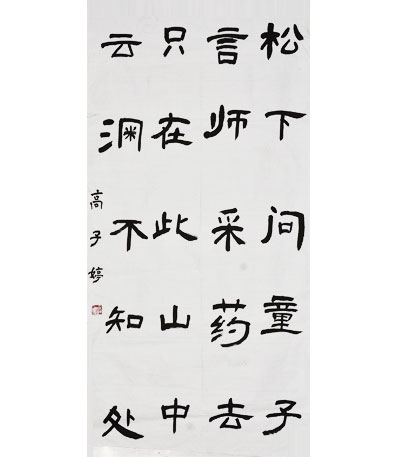 松下问童子
言师采药去
只在此山中
云深不知处
高子婷